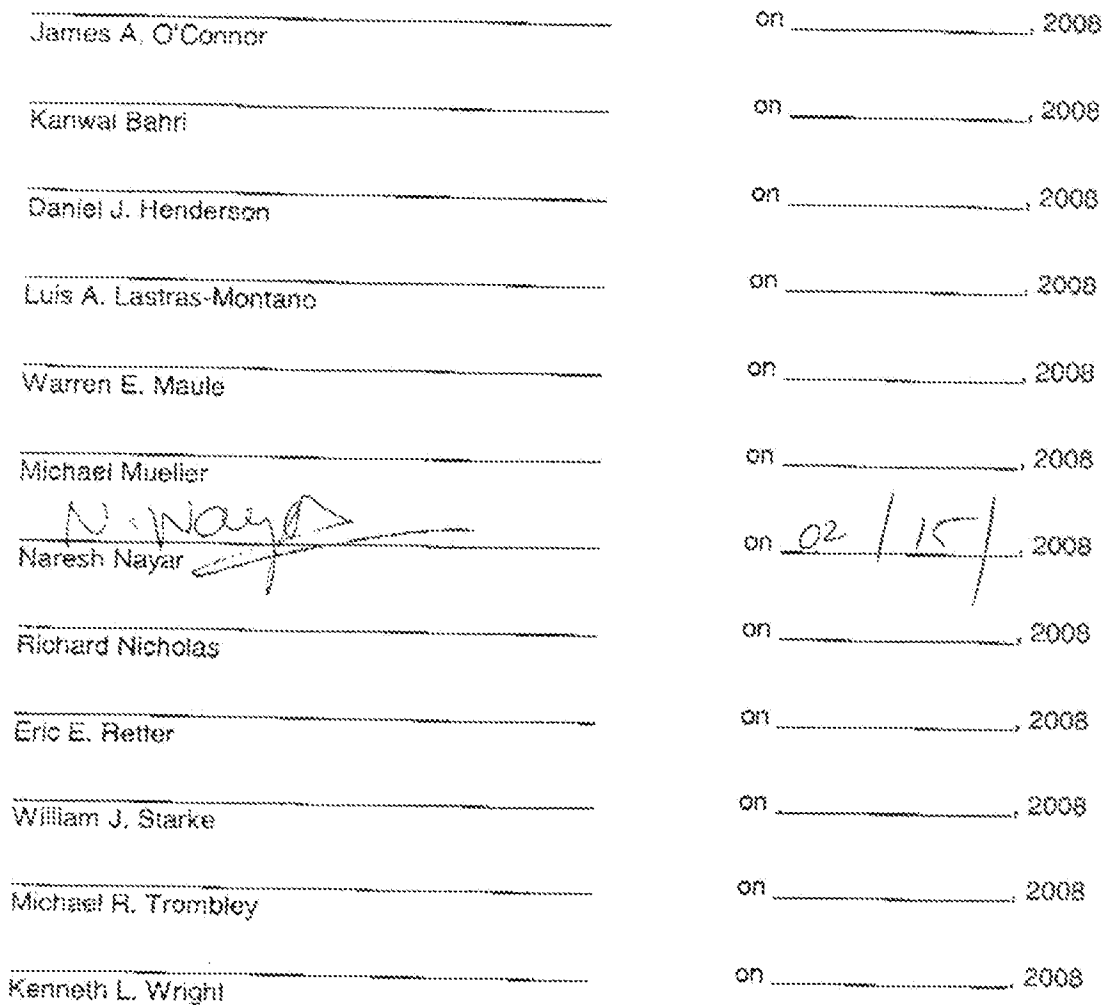 on , 2008
James A. O'Connor
on , 2008
Kanwal Bahri
on , 2008
Daniel J. Henderson
on , 2008
Luis A. Lastras-Montano
on , 2008
Warren E. Maule
on , 2008
Michael Mueller
N. Nayar on 02/15/ , 2008
Naresh Nayar
on , 2008
Richard Nicholas
on , 2008
Eric E. Retter
on , 2008
William J. Starke
on , 2008
Michael R. Trombley
on , 2008
Kenneth L. Wright